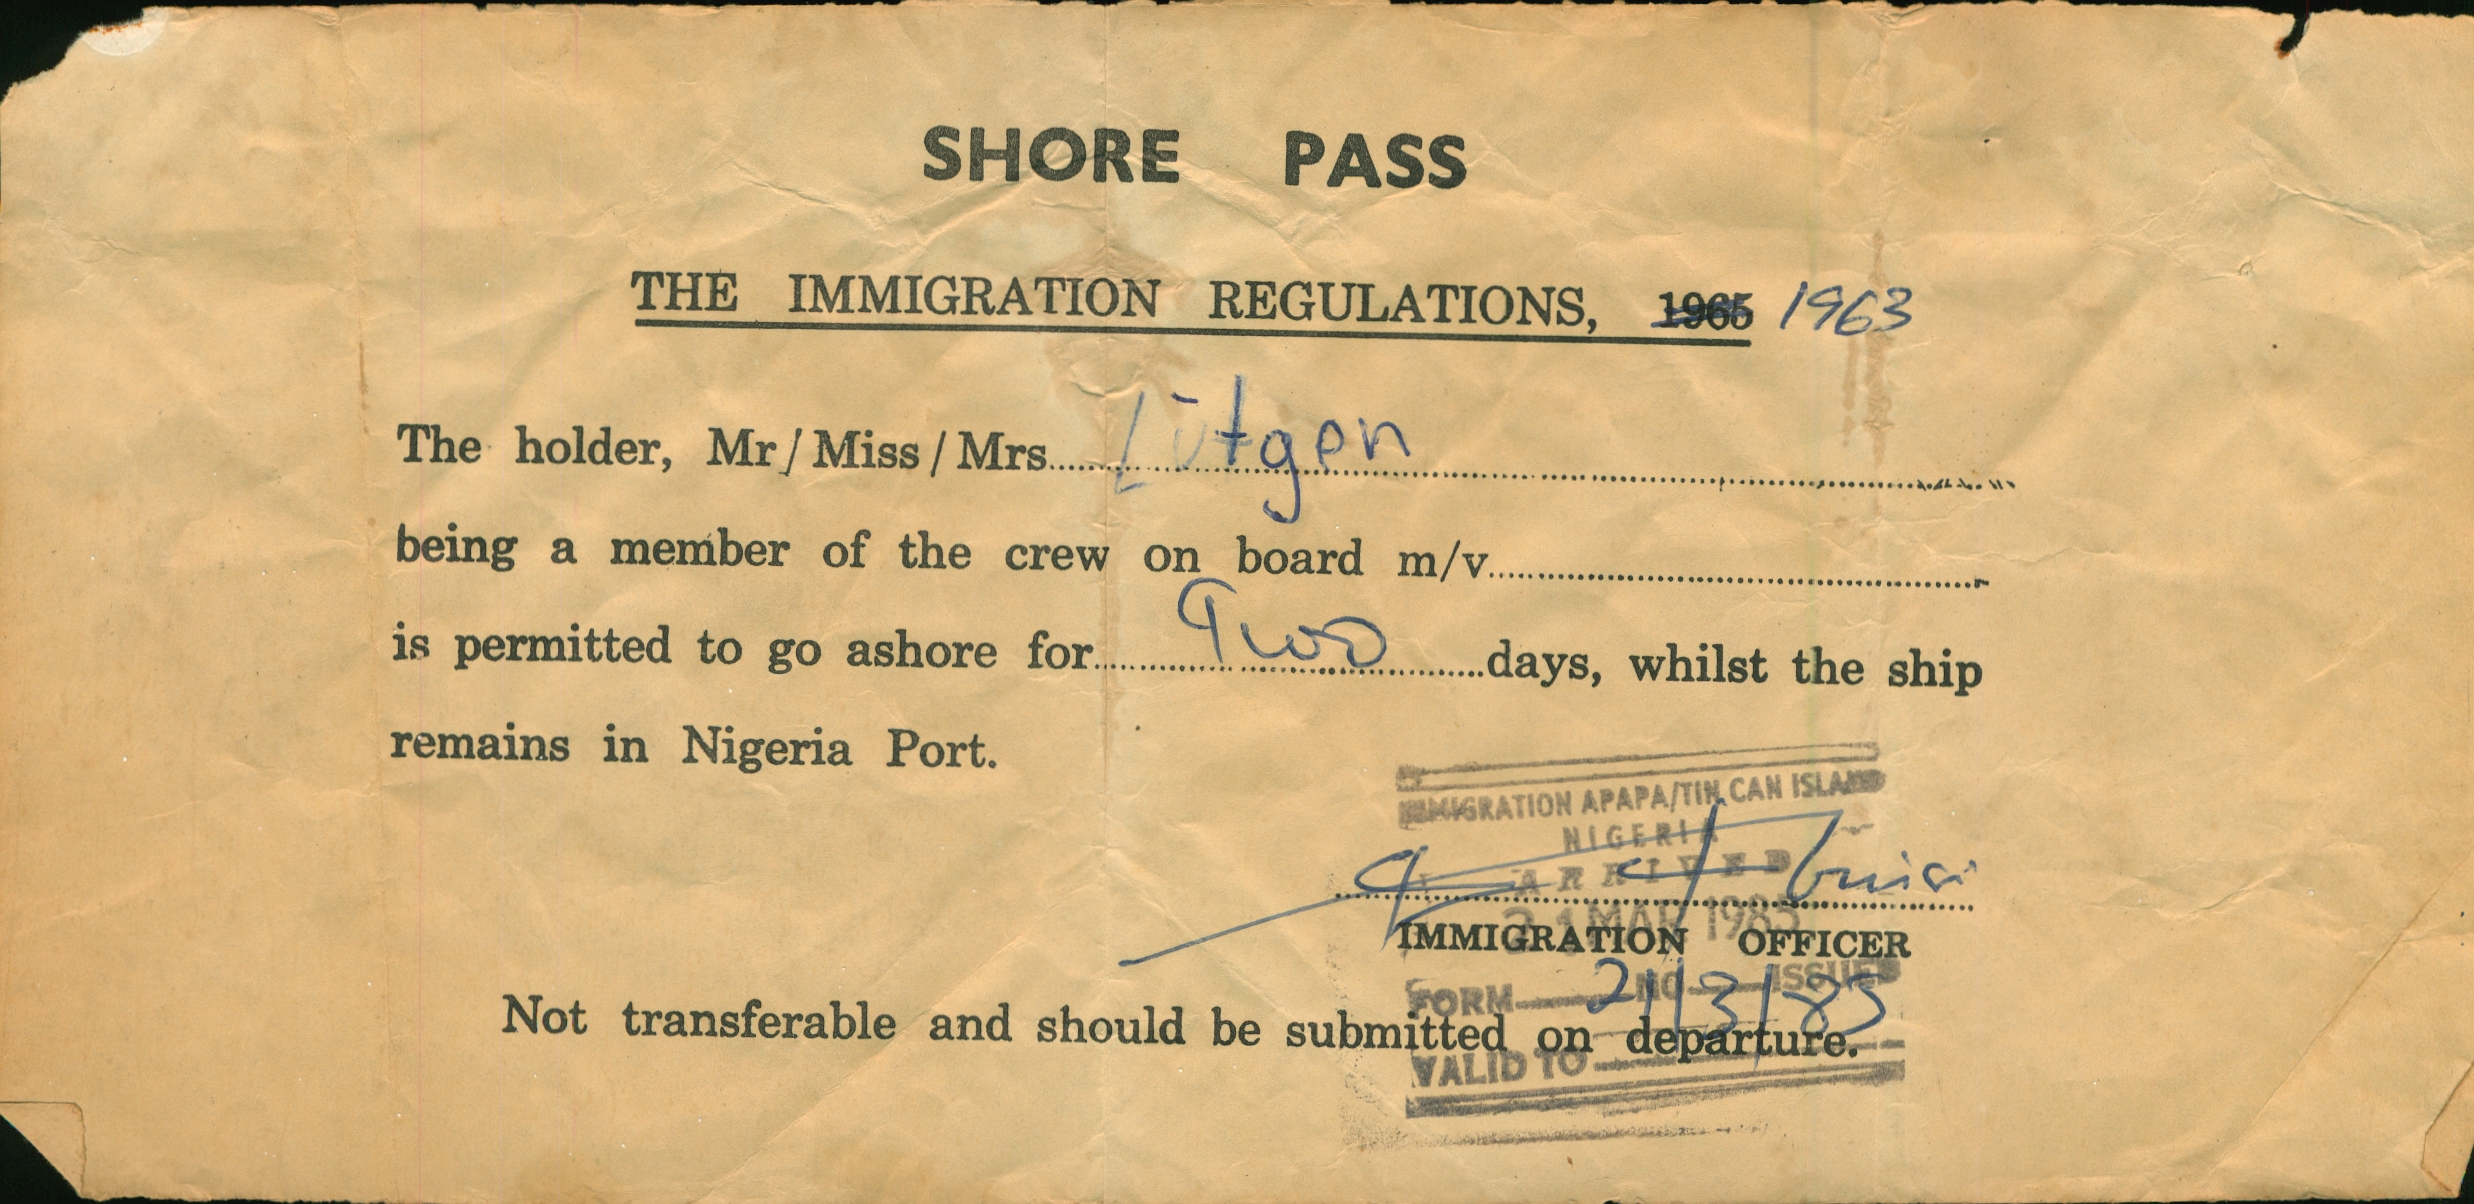 SHORE PASS
THE IMMIGRATION REGULATIONS, 1965 1963
The holder, Mr/Miss/Mrs Lütgen
being a member of the crew on board m/v
is permitted to go ashore for Two days, whilst the ship
remains in Nigeria Port.
IMMIGRATION APAPA/TIN CAN ISLAND
NIGERIA
ARRIVED
21 MAR 1983
IMMIGRATION OFFICER
FORM NO ISSUED
21/3/83
Not transferable and should be submitted on departure.
VALID TO